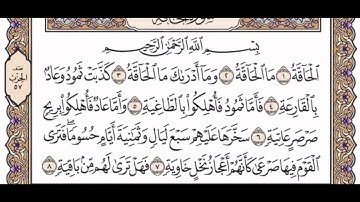 سورة الحاقة
بِسْمِ ٱللَّهِ ٱلرَّحْمَٰنِ ٱلرَّحِيمِ
ٱلْحَآقَّةُ ١ مَا ٱلْحَآقَّةُ ٢ وَمَآ أَدْرَىٰكَ مَا ٱلْحَآقَّةُ ٣ كَذَّبَتْ ثَمُودُ وَعَادٌۢ
بِٱلْقَارِعَةِ ٤ فَأَمَّا ثَمُودُ فَأُهْلِكُوا۟ بِٱلطَّاغِيَةِ ٥ وَأَمَّا عَادٌ فَأُهْلِكُوا۟ بِرِيحٍ
صَرْصَرٍ عَاتِيَةٍ ٦ سَخَّرَهَا عَلَيْهِمْ سَبْعَ لَيَالٍ وَثَمَٰنِيَةَ أَيَّامٍ حُسُومًا فَتَرَى
ٱلْقَوْمَ فِيهَا صَرْعَىٰ كَأَنَّهُمْ أَعْجَازُ نَخْلٍ خَاوِيَةٍ ٧ فَهَلْ تَرَىٰ لَهُم مِّنۢ بَاقِيَةٍ ٨
الحزب
٥٧